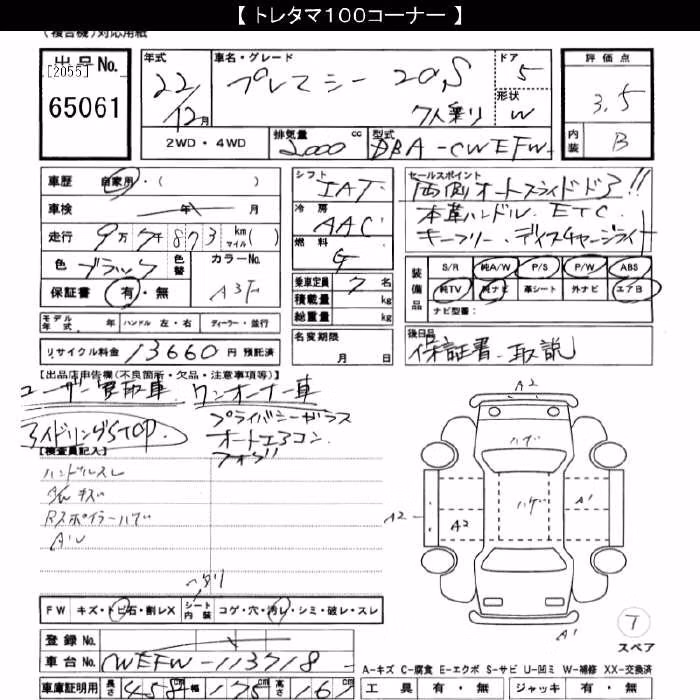 【 トレタマ100コーナー 】
(複合機)対応用紙
出品No.
[2055]
65061
年式 22/12月
車名・グレード
プレマシー 20S
7人乗り
ドア 5
形状 W
評価点
3.5
内装 B
2WD・4WD
排気量 2,000 cc
型式 DBA-CWEFW-
車歴 自家用・( )
車検 年 月
走行 9万7千873 km(マイル)
色 ブラック 色替 カラーNo. A3F
保証書 有・無
シフト IAT
冷房 AAC
燃料 G
乗車定員 7 名
積載量 kg
総重量 kg
名変期限 月 日
セールスポイント
両側オートスライドドア!!
本革ハンドル. ETC.
キーフリー. ディスチャージライト
装備品
S/R 純A/W P/S P/W ABS
純TV 純ナビ 革シート 外ナビ エアB
ナビ型番:
モデル年式 年 ハンドル 左・右 ディーラー・並行
リサイクル料金 13660 円 預託済
後日品
保証書. 取説
【出品店申告欄(不良箇所・欠品・注意事項等)】
ユーザー買取車. ワンオーナー車
アイドリングSTOP
プライバシーガラス
オートエアコン
フォグ
【検査員記入】
ハンドルスレ
A/W キズ
Rスポイラーハゲ
A2
ハゲ
ハゲ
A2
A2
A1
A1
7
スペア
FW キズ・トビ石・割レX シート内装 コゲ・穴・汚レ・シミ・破レ・スレ
登録No.
車台No. CWEFW-113718-
A-キズ C-腐食 E-エクボ S-サビ U-凹ミ W-補修 XX-交換済
車庫証明用 長さ 458cm 幅 175cm 高さ 167
工具 有・無 ジャッキ 有・無